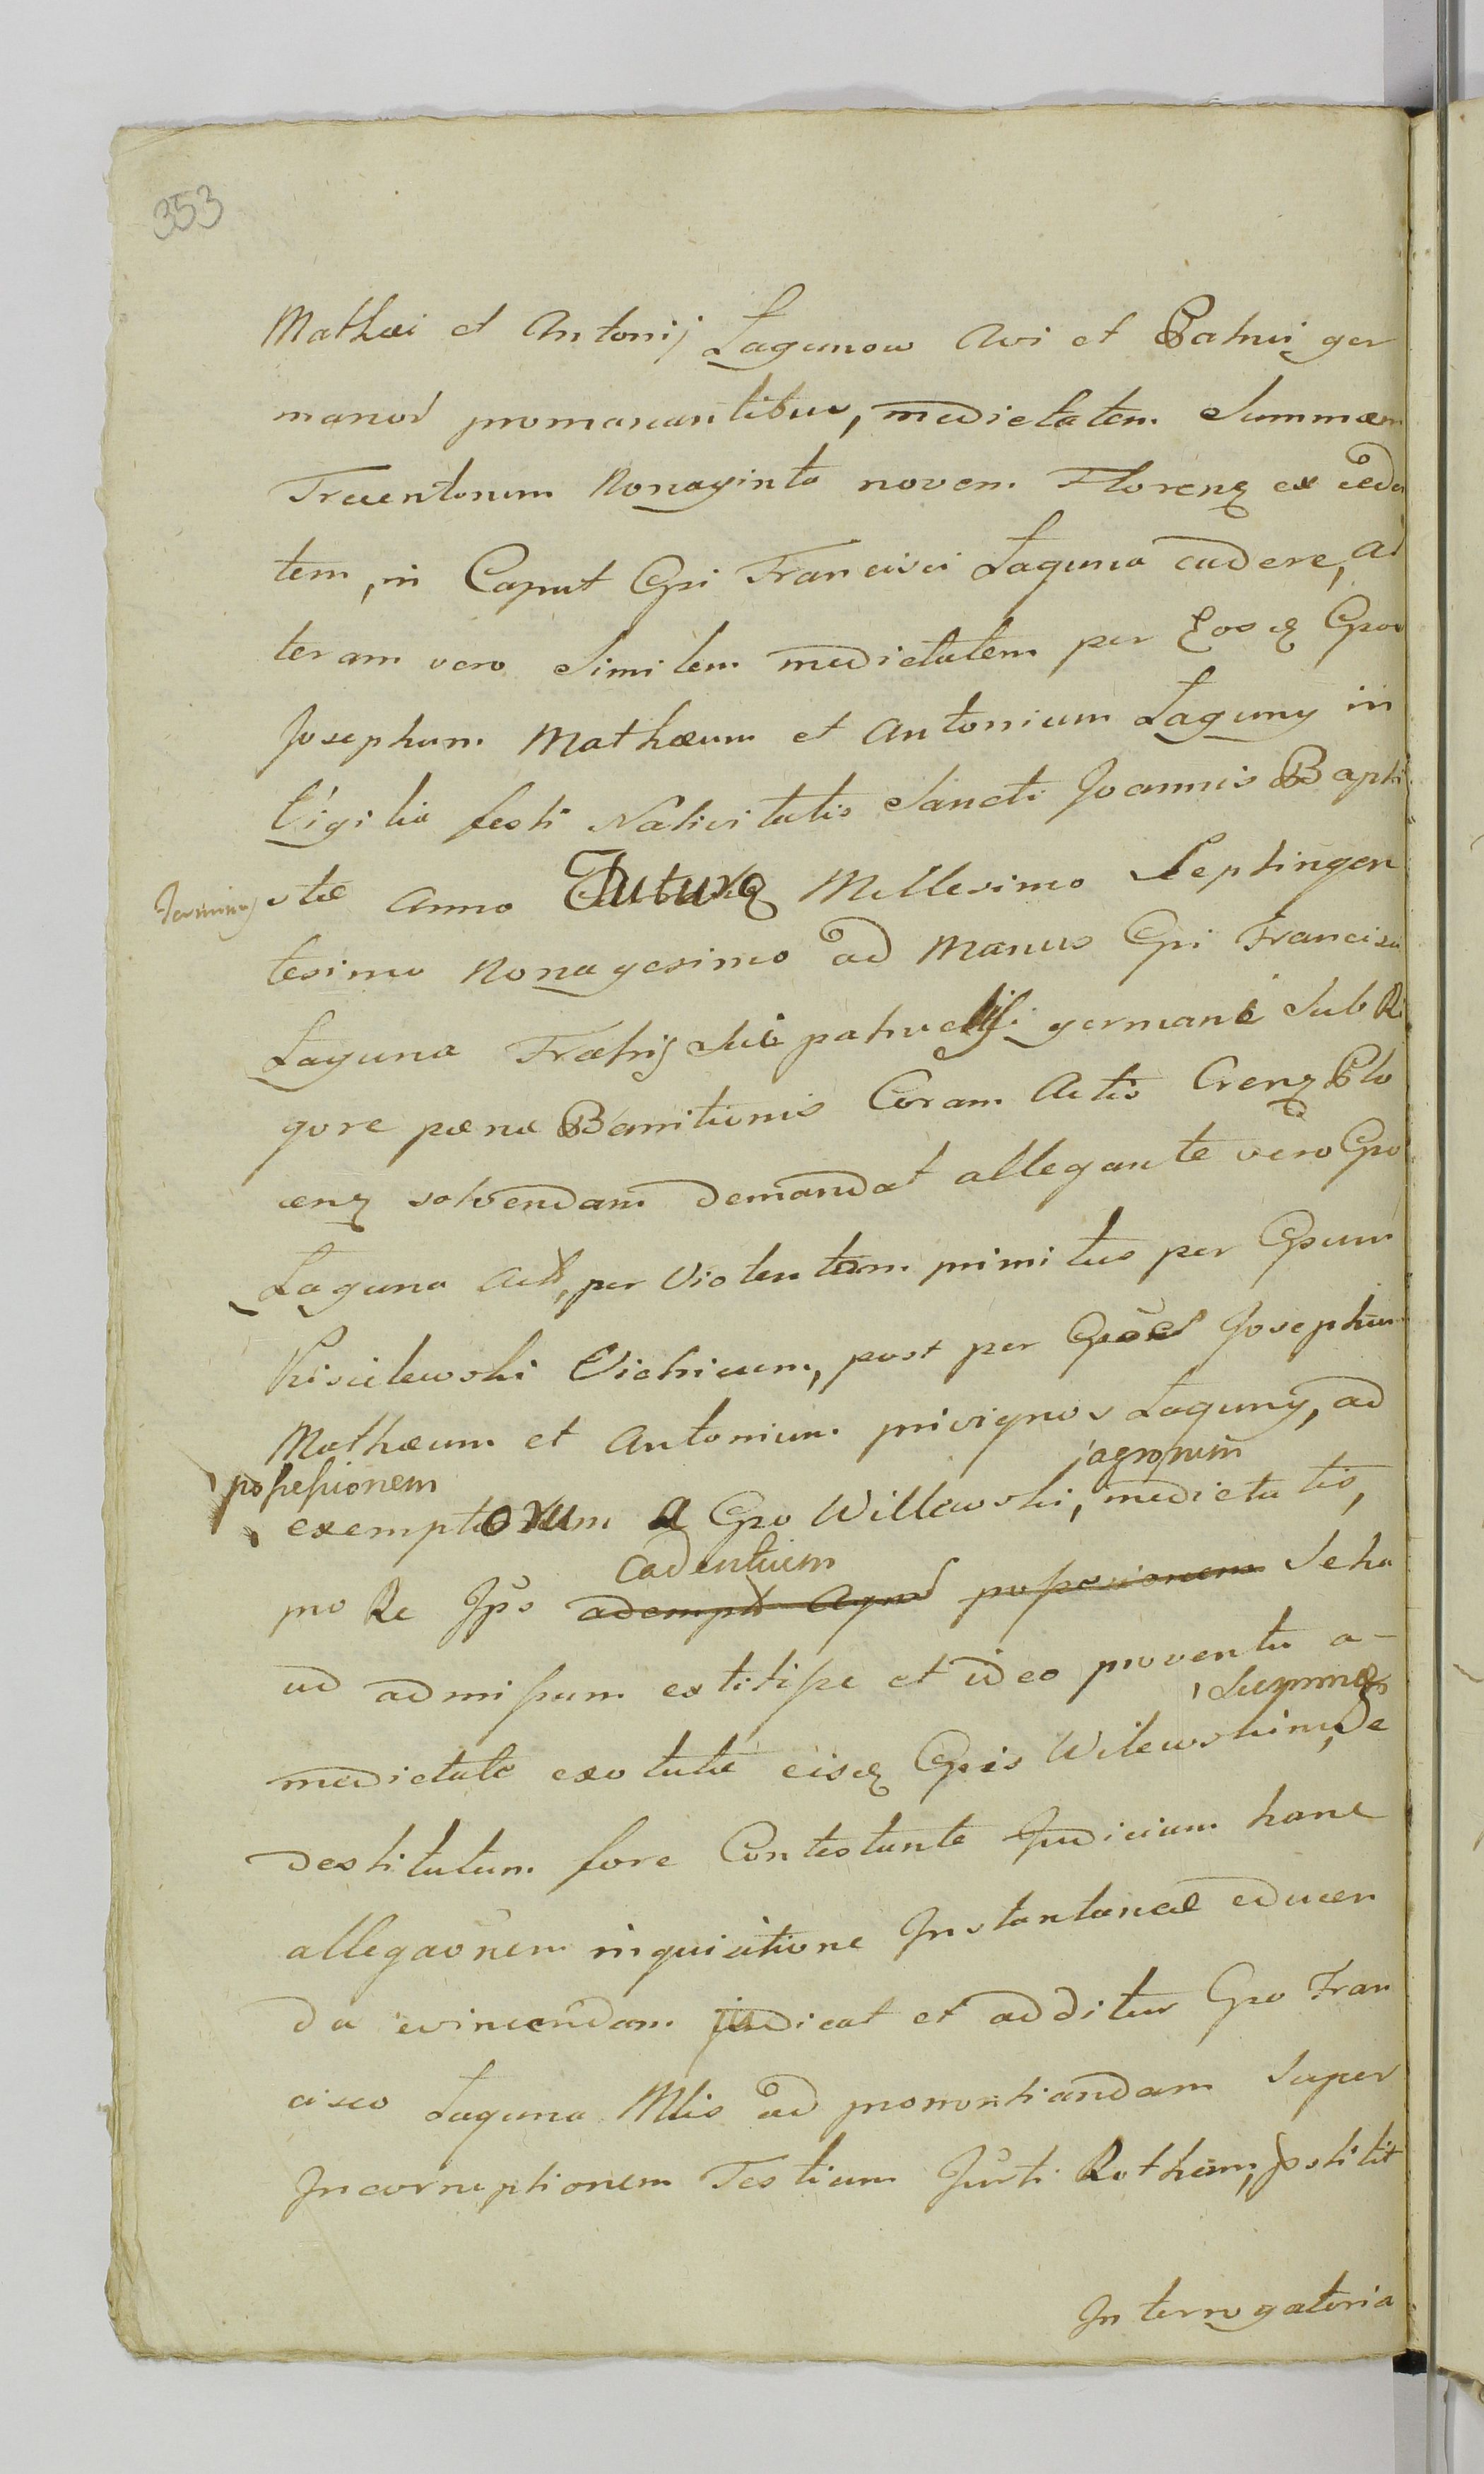 353
Mathæi et Antonij Lagunow Avi et Patrui ger
manor promanantibus, medietatem Summæ
Trecentorum Nonaginta novem Floren exceda
tem, in Caput Gsi Francisci Laguna cadere, al
teram vero Similem medietatem per Eosq Gsos
Josephum Mathæum et Antonium Laguny in
Vigilia festi Nativitatis Sancti Joannis Bapti
Terminus stæ Anno Futuro Millesimo Septingen
tesimo Nonagesimo ad Manus Gsi Francisci
Laguna Fratris Sui patruelis germani Sub Ri
gore pœnæ Bannitionis Coram Actis Cren Plo
cen solvendam demandat allegante vero Gso
Laguna Act, per Violentam primitus per Gsum
Kisielewski Vitricum, post per Gsos Josephum
Mathæum et Antonium privignos Laguny, ad
possessionem agrorum
exemptorum a Gso Willewski, medietatis,
cadentium
pro Re Ipso adempt Agror possessionem Seha
ud admissum extitisse et ideo proventu a-
Summæ
medietate exoluta eisq Gsis Wilewskim, de
destitutum fore Contestante Judicium hanc
allegaonem inquisitione Instantanea educen
da evincendam judicat et additur Gso Fran
cisco Laguna Mlis ad pronontiandam Super
Incorruptionem Testium Jurti Rotham, Postitit
Interrogatoria